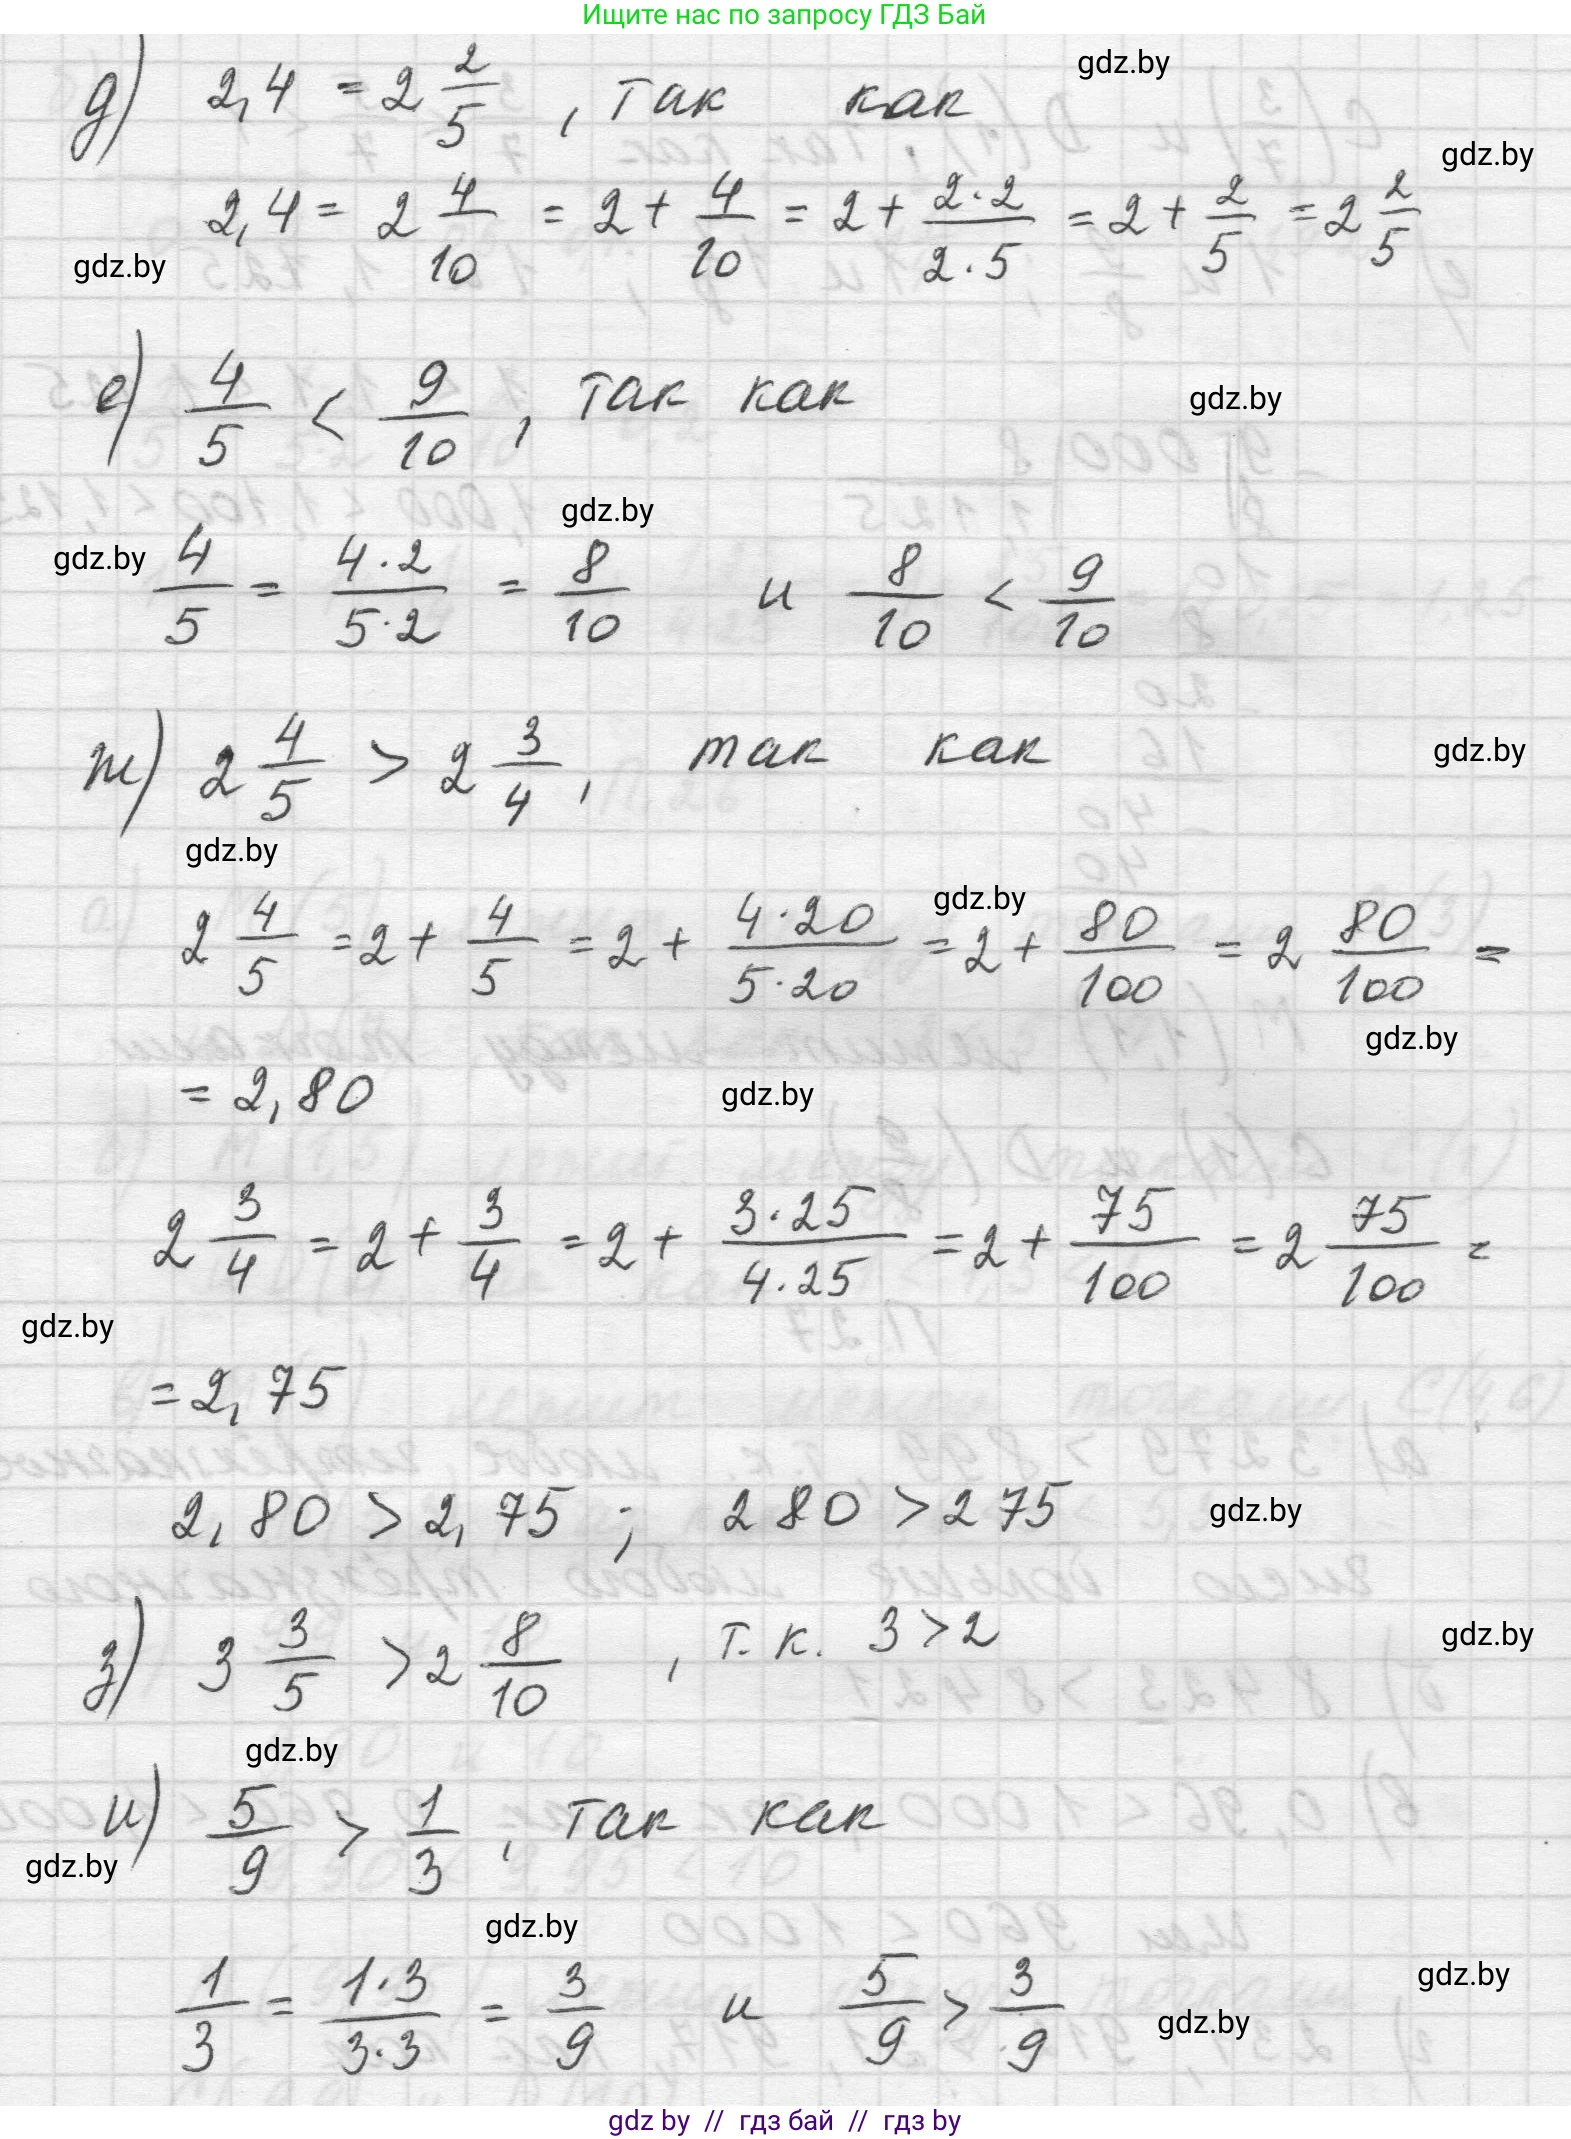 Ищите нас по запросу ГДЗ Бай
д) 2,4 = 2 2/5, так как
gdz.by
gdz.by
2,4 = 2 4/10 = 2 + 4/10 = 2 + 2·2/2·5 = 2 + 2/5 = 2 2/5
gdz.by
е) 4/5 < 9/10, так как
gdz.by
gdz.by
gdz.by
4/5 = 4·2/5·2 = 8/10 и 8/10 < 9/10
ж) 2 4/5 > 2 3/4, так как
gdz.by
gdz.by
gdz.by
2 4/5 = 2 + 4/5 = 2 + 4·20/5·20 = 2 + 80/100 = 2 80/100 =
gdz.by
= 2,80
gdz.by
2 3/4 = 2 + 3/4 = 2 + 3·25/4·25 = 2 + 75/100 = 2 75/100 =
gdz.by
= 2,75
2,80 > 2,75 ; 280 > 275
gdz.by
з) 3 3/5 > 2 8/10, т.к. 3 > 2
gdz.by
gdz.by
и) 5/9 > 1/3, так как
gdz.by
gdz.by
1/3 = 1·3/3·3 = 3/9 и 5/9 > 3/9
gdz.by
gdz.by
gdz by // гдз бай // гдз by